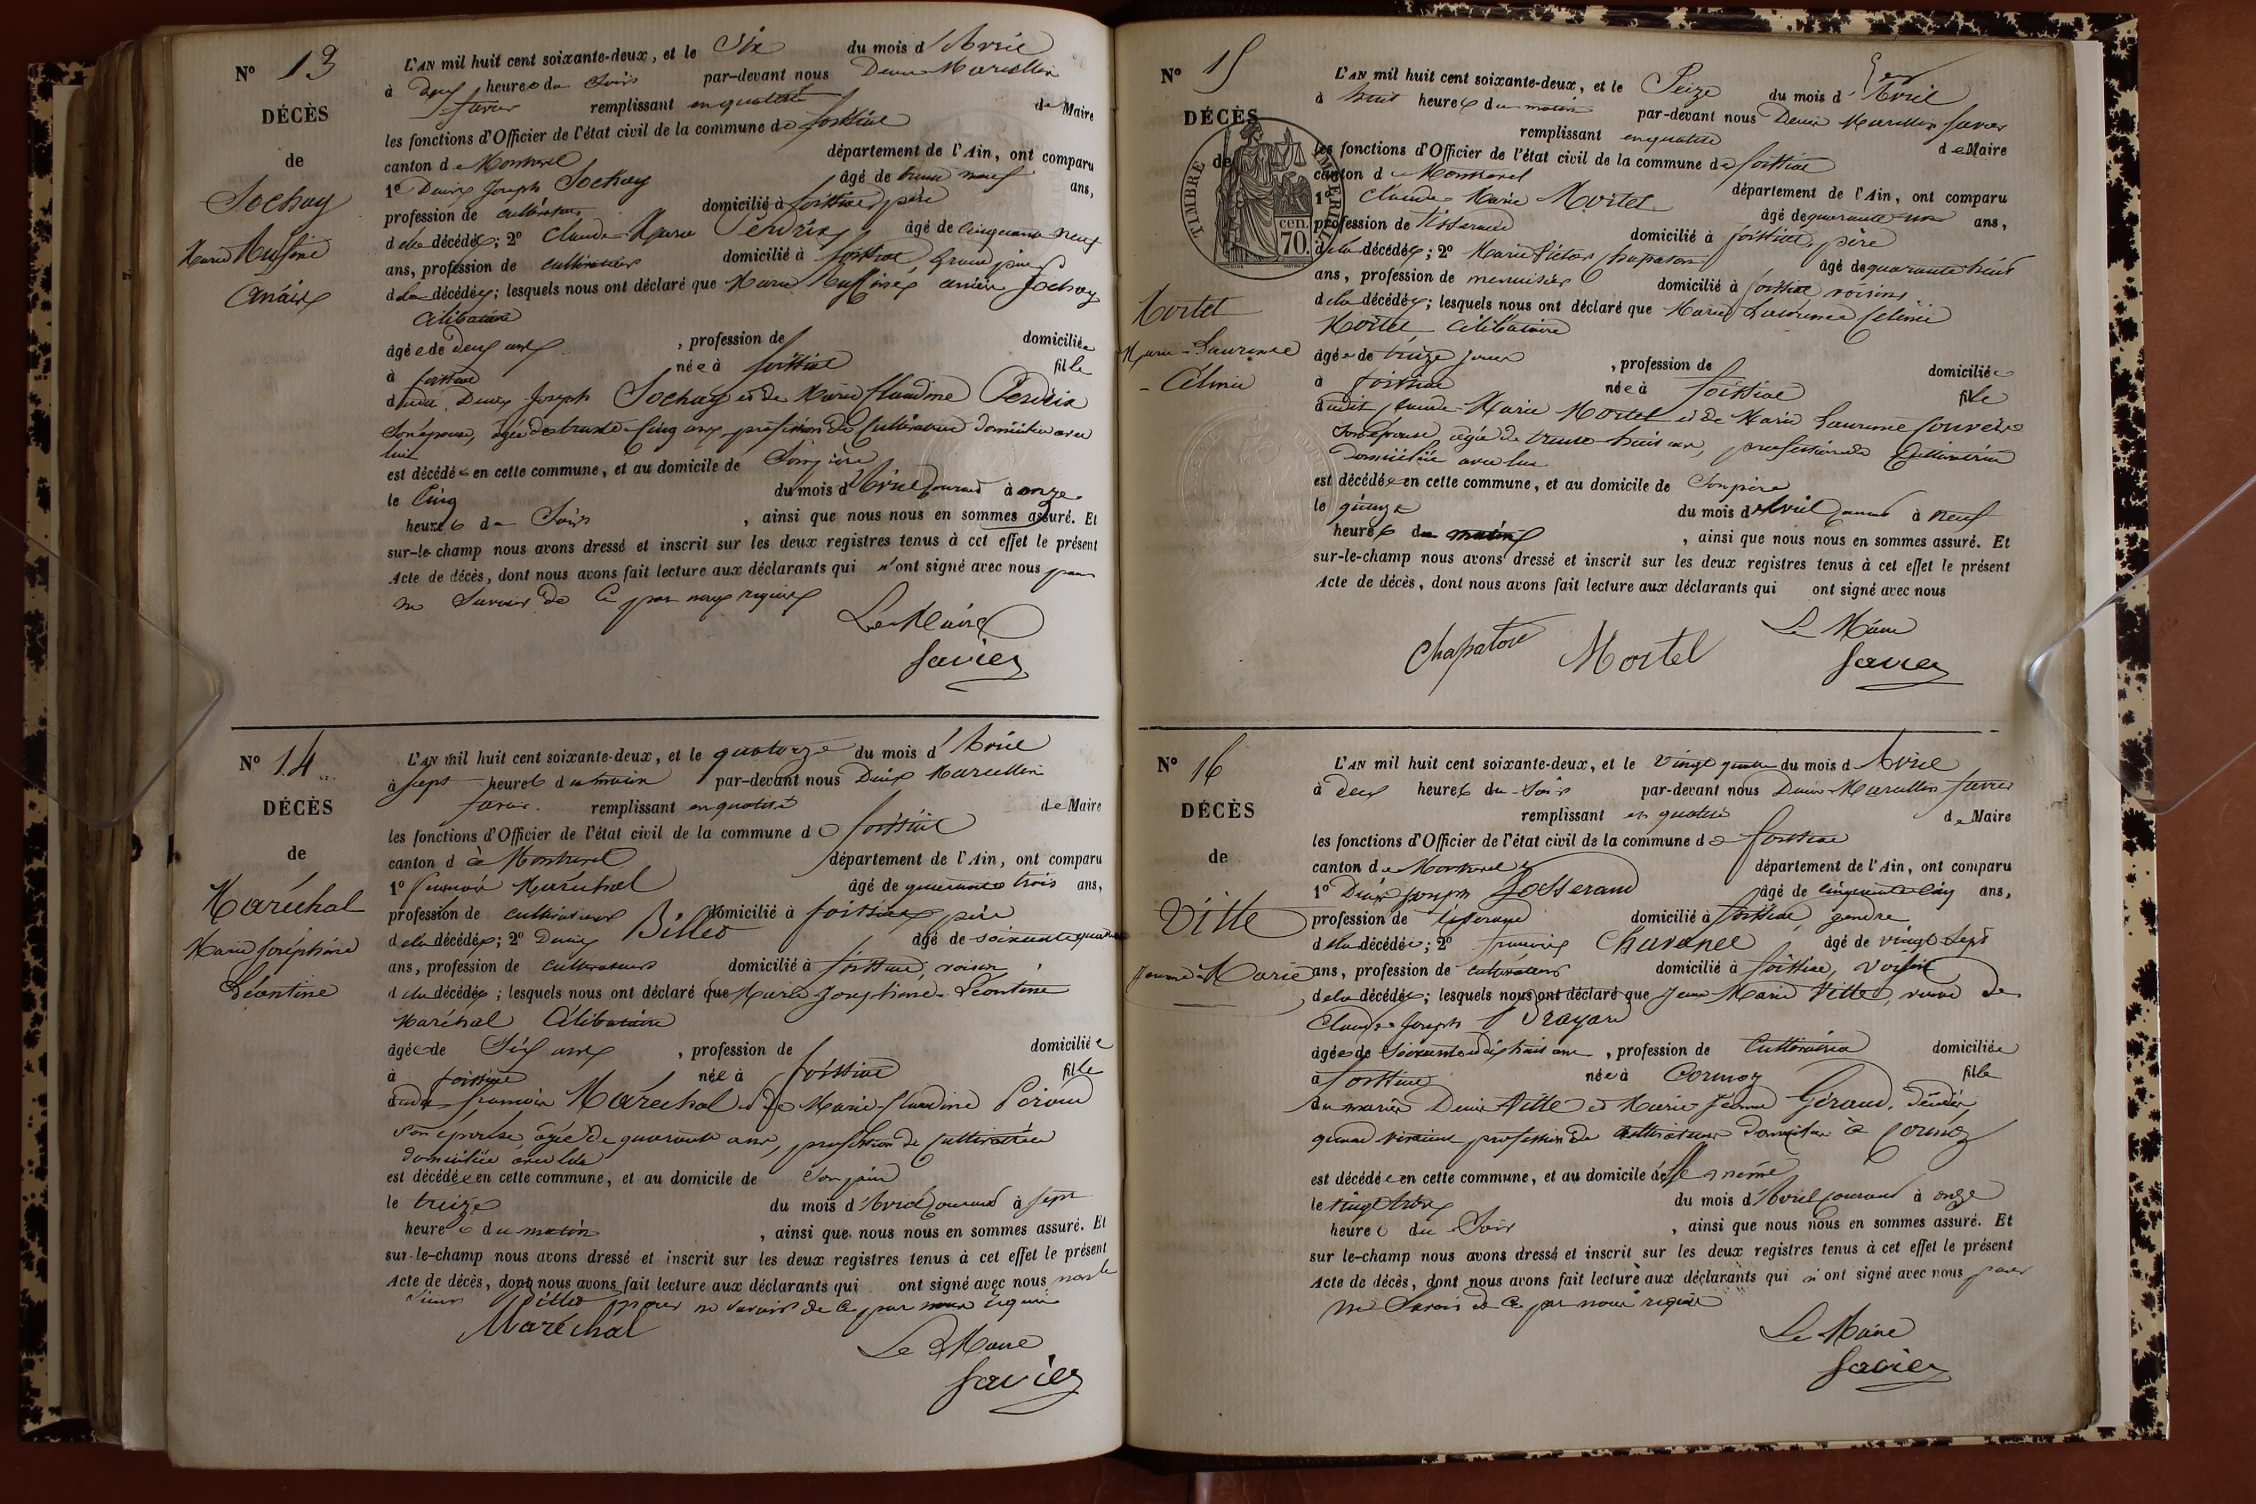 N° 13
DÉCÈS
de
Sochay
Marie
L'AN mil huit cent soixante-deux, et le Six du mois d'Avril
à Deux heures du Soir par-devant nous Denis Marcellin
Favier remplissant en qualité de Maire
les fonctions d'Officier de l'état civil de la commune de foissiat
canton de Montrevel département de l'Ain, ont comparu
1° Denis Joseph Sochay âgé de trente neuf ans,
profession de cultivateur domicilié à foissiat, père
de la décédée; 2° Claude Marie Perdrix âgé de Cinquante neuf
ans, profession de cultivateur domicilié à foissiat, Grand père
de la décédée; lesquels nous ont déclaré que Marie Sochay
Célibataire
âgée de Deux ans, profession de domiciliée
à foissiat née à foissiat fille
dudit Denis Joseph Sochay et de Marie Claudine Perdrix
Son épouse, âgée de trente-Cinq ans profession de Cultivatrice domiciliée avec
lui
est décédée en cette commune, et au domicile de Son père
le Cinq du mois d'Avril Courant à onze
heures du Soir, ainsi que nous nous en sommes assuré. Et
sur-le-champ nous avons dressé et inscrit sur les deux registres tenus à cet effet le présent
Acte de décès, dont nous avons fait lecture aux déclarants qui n'ont signé avec nous pour
ne Savoir de Ce par nous requis
Le Maire
Favier
N° 14
DÉCÈS
de
Maréchal
Marie Joséphine
Léontine
L'AN mil huit cent soixante-deux, et le quatorze du mois d'Avril
à Sept heures du matin par-devant nous Denis Marcellin
Favier remplissant en qualité de Maire
les fonctions d'Officier de l'état civil de la commune de foissiat
canton de Montrevel département de l'Ain, ont comparu
1° François Maréchal âgé de quarante trois ans,
profession de cultivateur domicilié à foissiat, père
de la décédée; 2° Denis Billet âgé de soixante quatre
ans, profession de cultivateur domicilié à foissiat, voisin
de la décédée; lesquels nous ont déclaré que Marie Joséphine Léontine
Maréchal Célibataire
âgée de Six ans, profession de domiciliée
à foissiat née à foissiat fille
dudit françois Maréchal et de Marie Claudine
Son épouse, âgée de quarante ans, profession de Cultivatrice
domiciliée avec lui
est décédée en cette commune, et au domicile de Son père
le treize du mois d'Avril Courant à Sept
heures du matin, ainsi que nous nous en sommes assuré. Et
sur-le-champ nous avons dressé et inscrit sur les deux registres tenus à cet effet le présent
Acte de décès, dont nous avons fait lecture aux déclarants qui ont signé avec nous non le
Sieur Billet pour ne Savoir de Ce par nous requis
Maréchal
Le Maire
Favier
N° 15
DÉCÈS
de
TIMBRE IMPERIAL
70 cen.
Mortel
Marie-Laurence
Célinie
L'AN mil huit cent soixante-deux, et le Seize du mois d'Avril
à huit heures du matin par-devant nous Denis Marcellin Favier
remplissant en qualité de Maire
les fonctions d'Officier de l'état civil de la commune de foissiat
canton de Montrevel département de l'Ain, ont comparu
1° Claude-Marie Mortel âgé de quarante ans,
profession de tisserand domicilié à foissiat, père
de la décédée; 2° Marie Victor Chapaton âgé de quarante huit
ans, profession de menuisier domicilié à foissiat voisins
de la décédée; lesquels nous ont déclaré que Marie Laurence Célinie
Mortel Célibataire
âgée de treize jours, profession de domiciliée
à foissiat née à foissiat fille
dudit Claude-Marie Mortel et de Marie Laurence
Son épouse âgée de trente-huit ans, profession de Cultivatrice
domiciliée avec lui
est décédée en cette commune, et au domicile de Son père
le quinze du mois d'Avril Courant à neuf
heures du matin, ainsi que nous nous en sommes assuré. Et
sur-le-champ nous avons dressé et inscrit sur les deux registres tenus à cet effet le présent
Acte de décès, dont nous avons fait lecture aux déclarants qui ont signé avec nous
Chapaton Mortel
Le Maire
Favier
N° 16
DÉCÈS
de
Vitte
Jeanne-Marie
L'AN mil huit cent soixante-deux, et le Vingt quatre du mois d Avril
à deux heures du Soir par-devant nous Denis Marcellin Favier
remplissant en qualité de Maire
les fonctions d'Officier de l'état civil de la commune de foissiat
canton de Montrevel département de l'Ain, ont comparu
1° Denis Joseph Josserand âgé de Cinquante Cinq ans,
profession de tisserand domicilié à foissiat, gendre
de la décédée; 2° françois Chavanel âgé de vingt Sept
ans, profession de cultivateur domicilié à foissiat, voisin
de la décédée; lesquels nous ont déclaré que Jeanne Marie Vitte, veuve de
Claude Joseph
âgée de Soixante et dix huit ans, profession de Cultivatrice domiciliée
à foissiat née à Cormoz fille
des mariés Denis Vitte et Marie Géraud, décédés
quand vivaient profession de cultivateurs domiciliés à Cormoz
est décédée en cette commune, et au domicile d'elle même
le vingt trois du mois d'Avril Courant à onze
heures du Soir, ainsi que nous nous en sommes assuré. Et
sur le-champ nous avons dressé et inscrit sur les deux registres tenus à cet effet le présent
Acte de décès, dont nous avons fait lecture aux déclarants qui n'ont signé avec nous pour
ne Savoir de Ce par nous requis
Le Maire
Favier